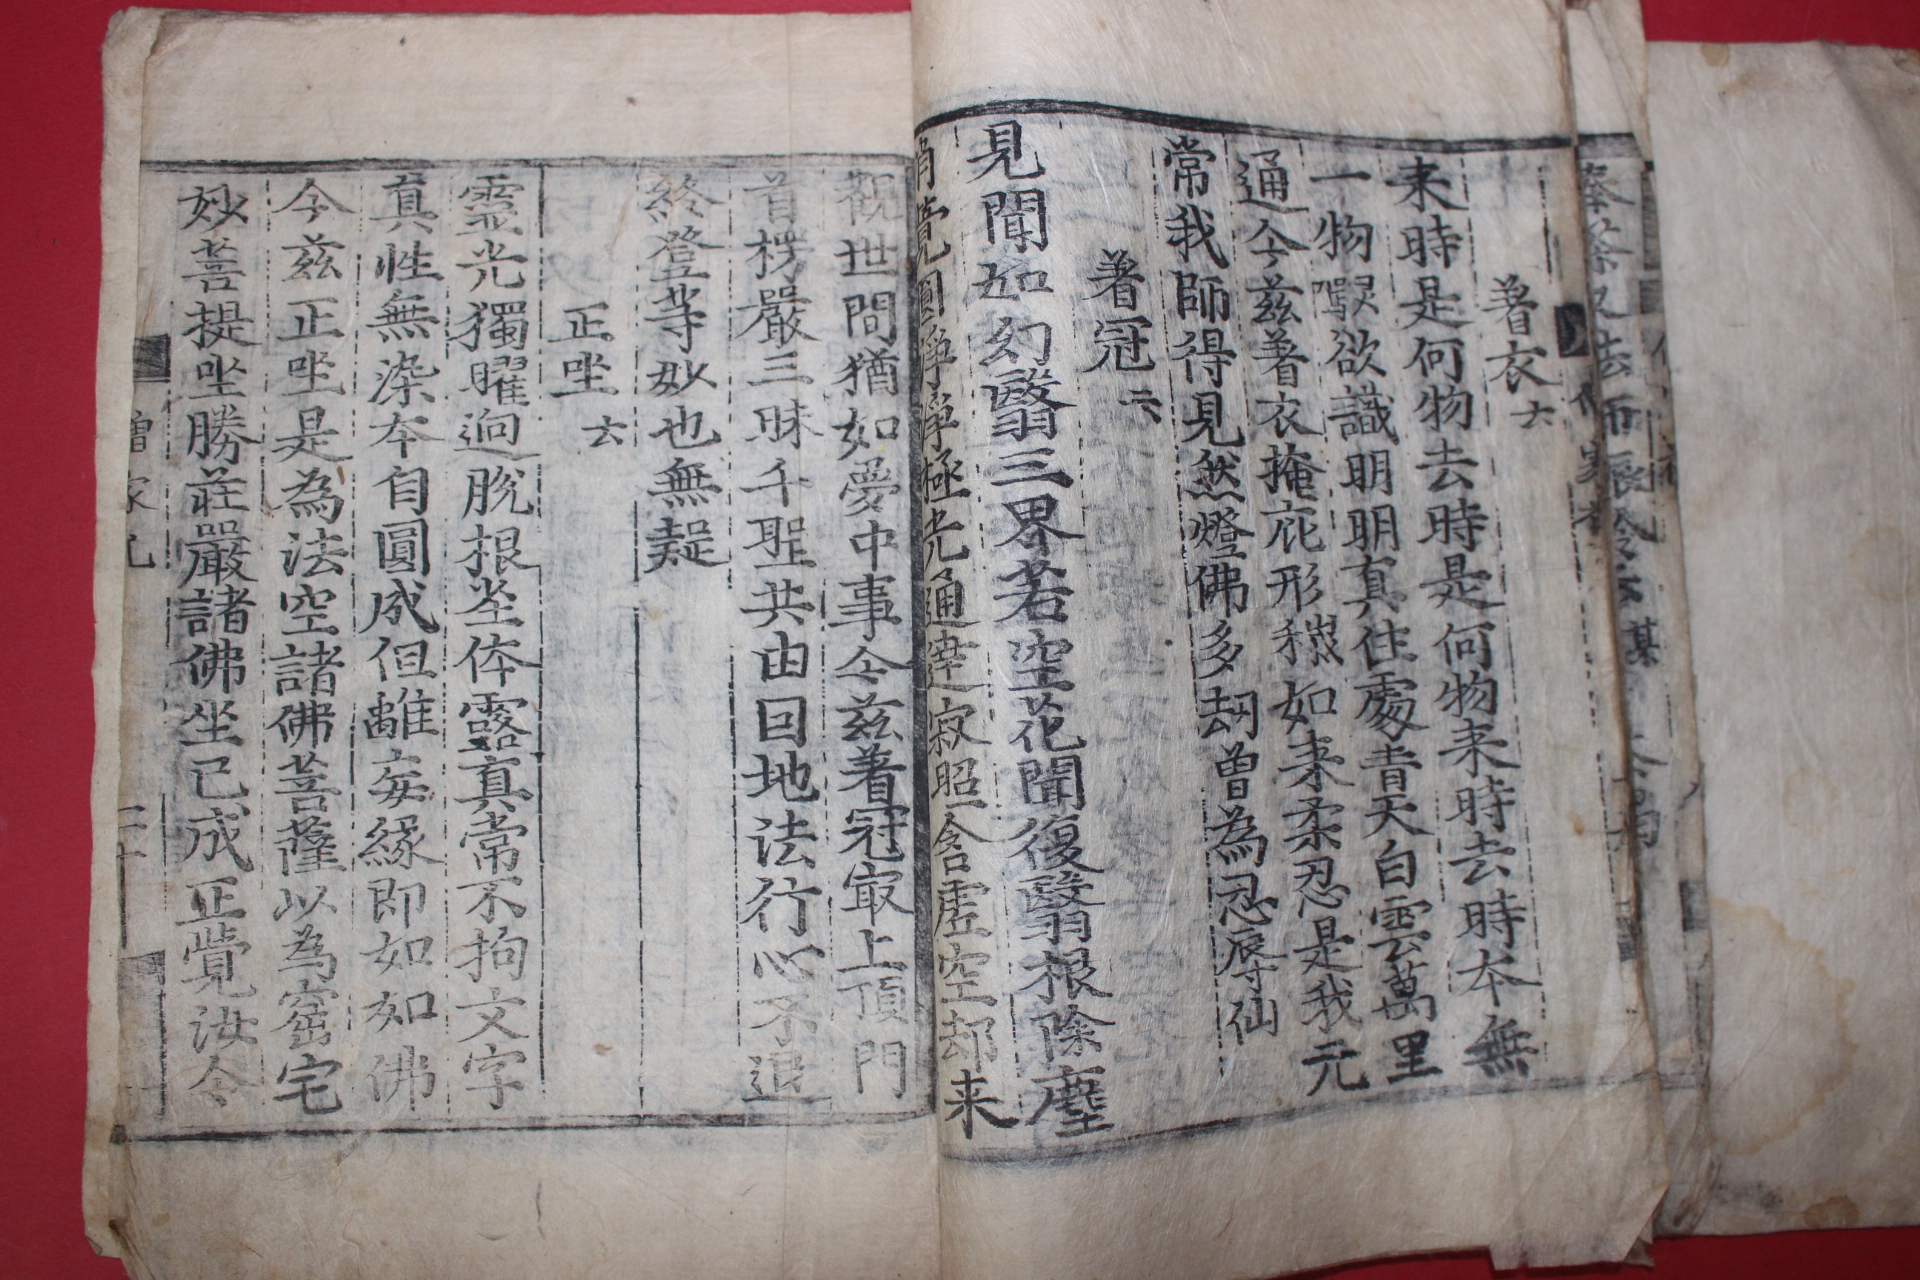 著衣 六
来時是何物去時是何物来時去時本無
一物欲識明明真住處青天白雲萬里
通今兹著衣掩庇形穢如来柔忍是我元
常我師得見燃燈佛多刧曽為忍辱仙
著冠 六
見聞如幻翳三界若空花聞復翳根除塵
消覺圓淨淨極光通達寂照含虛空却来
觀世間猶如夢中事今兹著冠㝡上頂門
首楞嚴三昧千聖共由回地法行心不退
終登等妙也無疑
正坐 六
靈光獨曜逈脫根塵体露真常不拘文字
真性無染夲自圓成但離妄緣即如如佛
今兹正坐是為法空諸佛菩薩以為窟宅
妙菩提坐勝莊嚴諸佛坐已成正覺汝今
僧家礼
三十